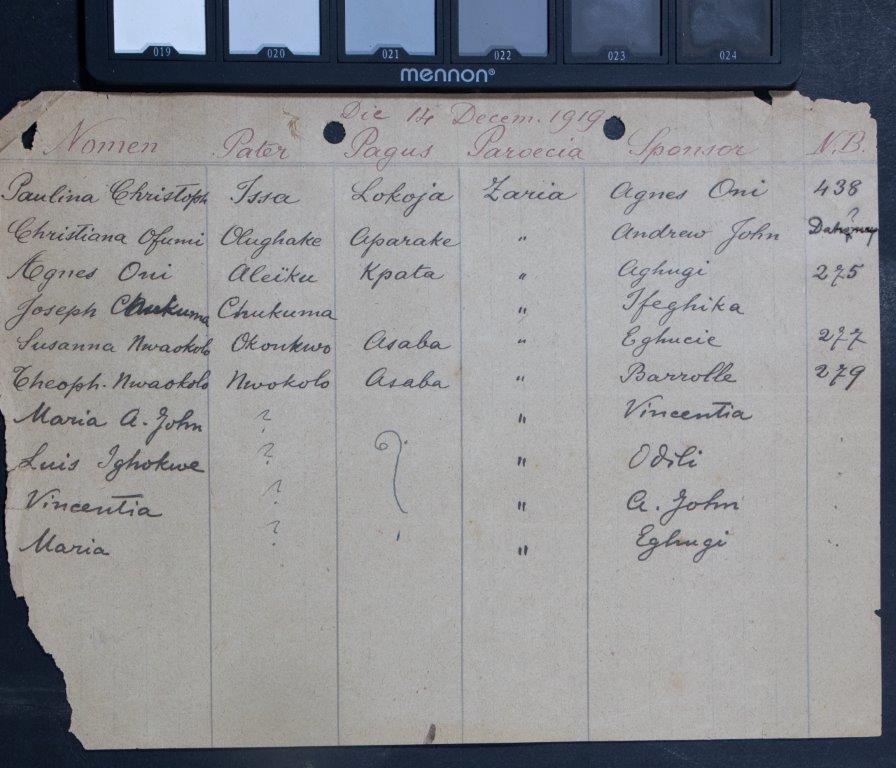 019 020 021 022 023 024
mennon®
Die 14 Decem. 1919
Nomen Pater Pagus Paroecia Sponsor N.B.
Paulina Christoph Issa Lokoja Zaria Agnes Oni 438
Christiana Ofumi Olughake Aparake " Andrew John ?
Agnes Oni Aleïku Kpata " Aghugi 275
Joseph Chukuma Chukuma " Ifeghika
Susanna Nwaokolo Okonkwo Asaba " Eghucie 277
Theoph. Nwaokolo Nwokolo Asaba " Barrolle 279
Maria A. John ? ? " Vincentia
Luis Ighokwe ? " Odili
Vincentia ? " A. John
Maria ? " Eghugi